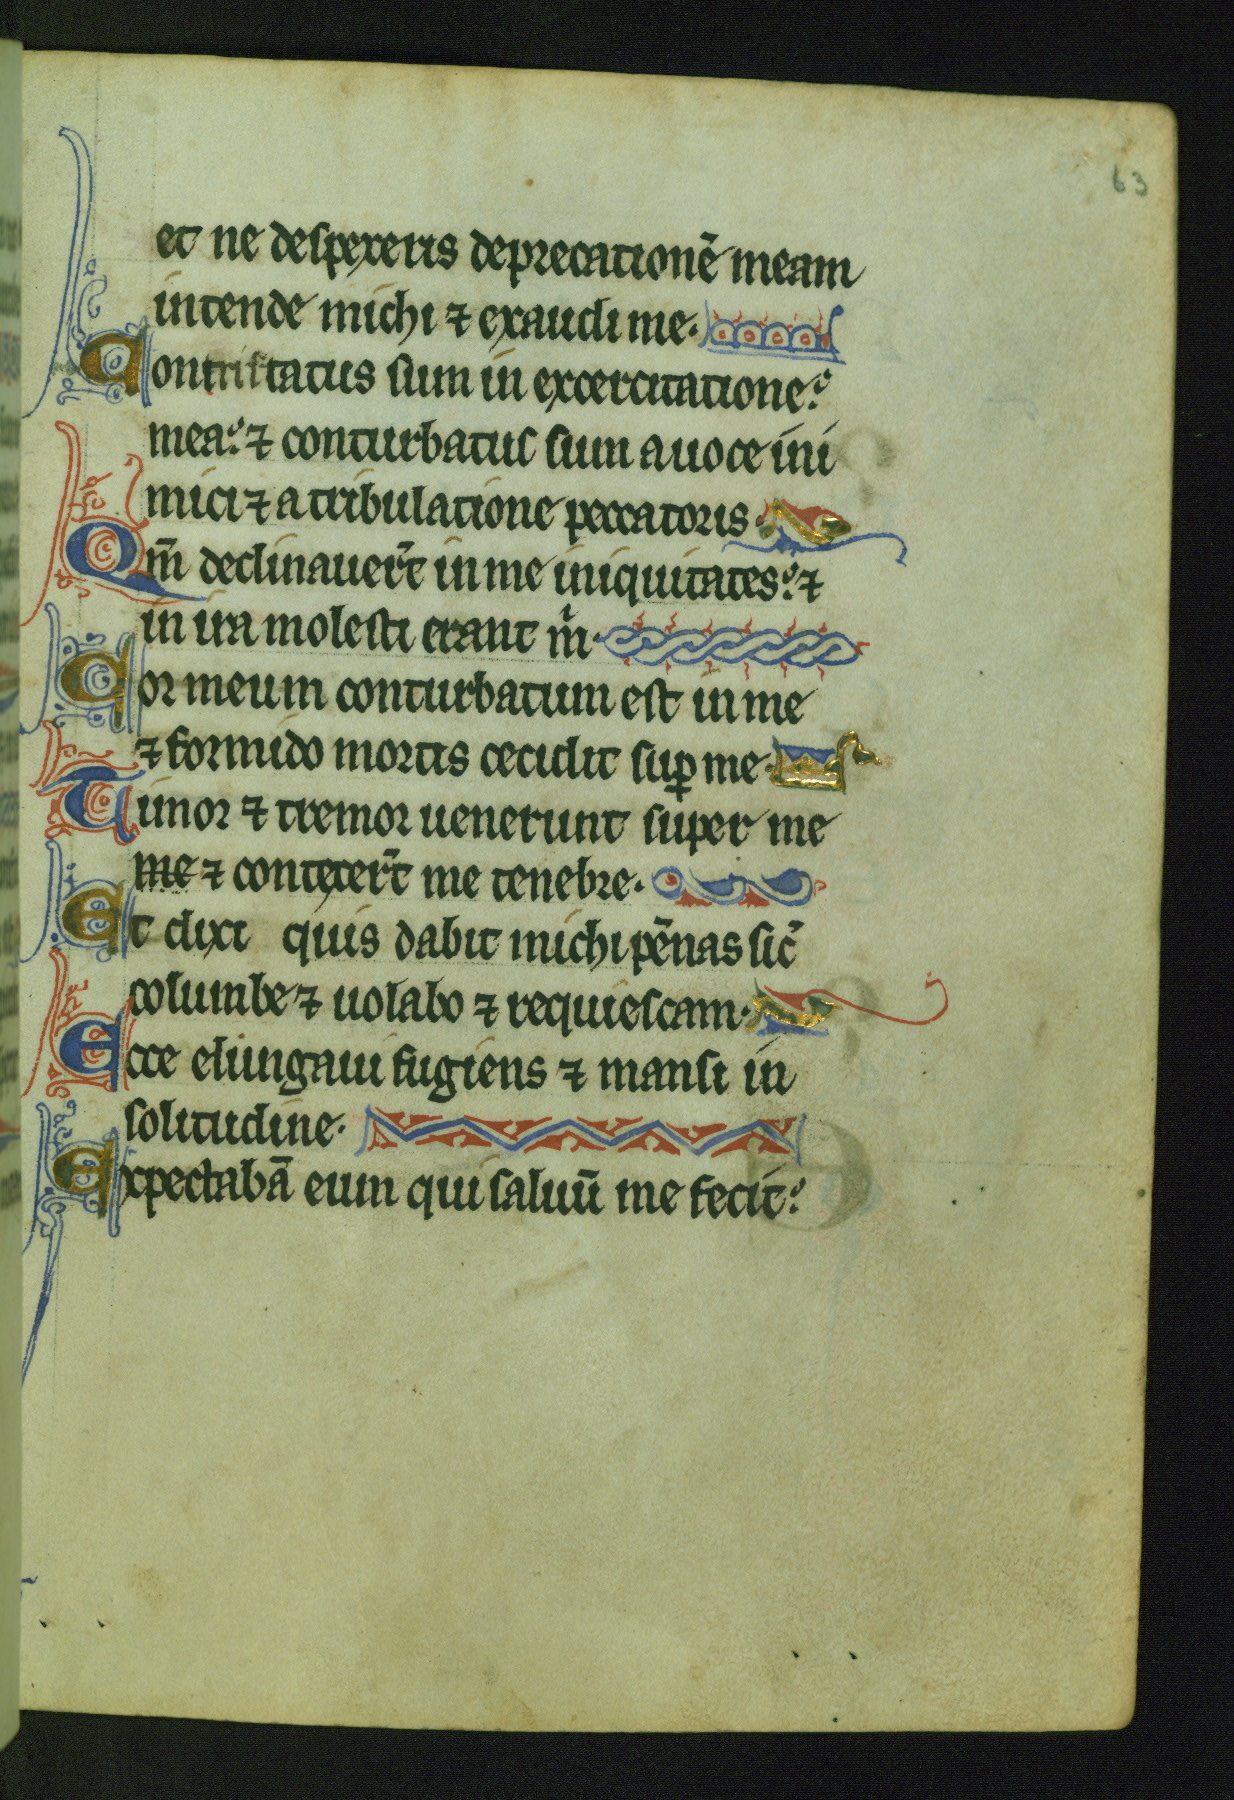 63
et ne despexeris deprecationē meam
intende michi ⁊ exaudi me.
Contristatus sum in excercitatione
mea ⁊ conturbatus sum a uoce ini
mici ⁊ a tribulatione peccatoris.
Qm̄ declinauer̄t in me iniquitates ⁊
in ira molesti erant m̄.
Cor meum conturbatum est in me
⁊ formido mortis cecidit suꝑ me.
Timor ⁊ tremor uenerunt super me
me ⁊ contexer̄t me tenebre.
Et dixi quis dabit michi pēnas sic̄
columbe ⁊ uolabo ⁊ requiescam.
Ecce elungaui fugiens ⁊ mansi in
solitudine.
Expectabā eum qui saluū me fecit